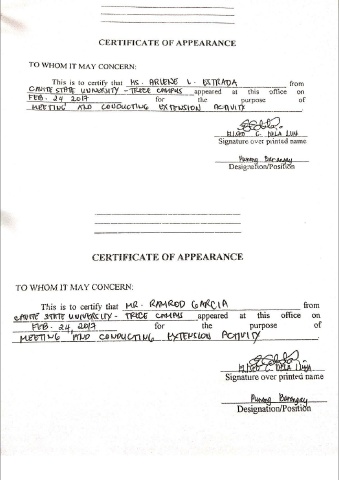 CERTIFICATE OF APPEARANCE
TO WHOM IT MAY CONCERN:
This is to certify that MS. ARLENE L. ESTRADA from
CAVITE STATE UNIVERSITY - TRECE CAMPUS appeared at this office on
FEB. 24 2017 for the purpose of
MEETING AND CONDUCTING EXTENSION ACTIVITY.
C. DELA
Signature over printed name
Punong Barangay
Designation/Position
CERTIFICATE OF APPEARANCE
TO WHOM IT MAY CONCERN:
This is to certify that MR. RAMROD GARCIA from
CAVITE STATE UNIVERCITY - TRECE CAMPUS appeared at this office on
FEB. 24, 2017 for the purpose of
MEETING AND CONDUCTING EXTENSION ACTIVITY.
C. DELA
Signature over printed name
Punong Barangay
Designation/Position